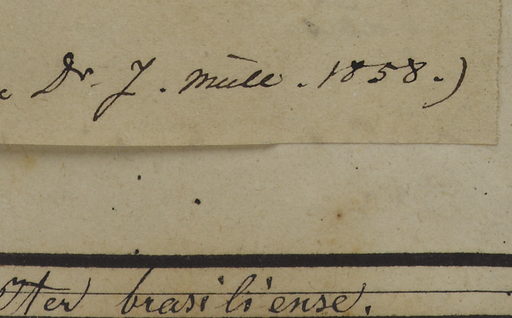 Dr. J. Müll. 1858.)
Iter brasiliense.